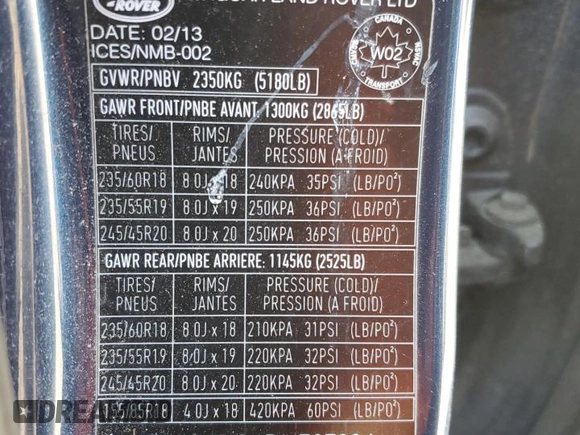 ROVER LAND ROVER LTD
DATE: 02/13
ICES/NMB-002
CANADA
W02
TRANSPORT
GVWR/PNBV 2350KG (5180LB)
GAWR FRONT/PNBE AVANT 1300KG (2865LB)
TIRES/ PNEUS RIMS/ JANTES PRESSURE (COLD)/ PRESSION (A FROID)
235/60R18 8.0J x 18 240KPA 35PSI (LB/PO²)
235/55R19 8.0J x 19 250KPA 36PSI (LB/PO²)
245/45R20 8.0J x 20 250KPA 36PSI (LB/PO²)
GAWR REAR/PNBE ARRIERE: 1145KG (2525LB)
TIRES/ PNEUS RIMS/ JANTES PRESSURE (COLD)/ PRESSION (A FROID)
235/60R18 8.0J x 18 210KPA 31PSI (LB/PO²)
235/55R19 8.0J x 19 220KPA 32PSI (LB/PO²)
245/45R20 8.0J x 20 220KPA 32PSI (LB/PO²)
155/85R18 4.0J x 18 420KPA 60PSI (LB/PO²)
AUTOHELPERBOT.COM